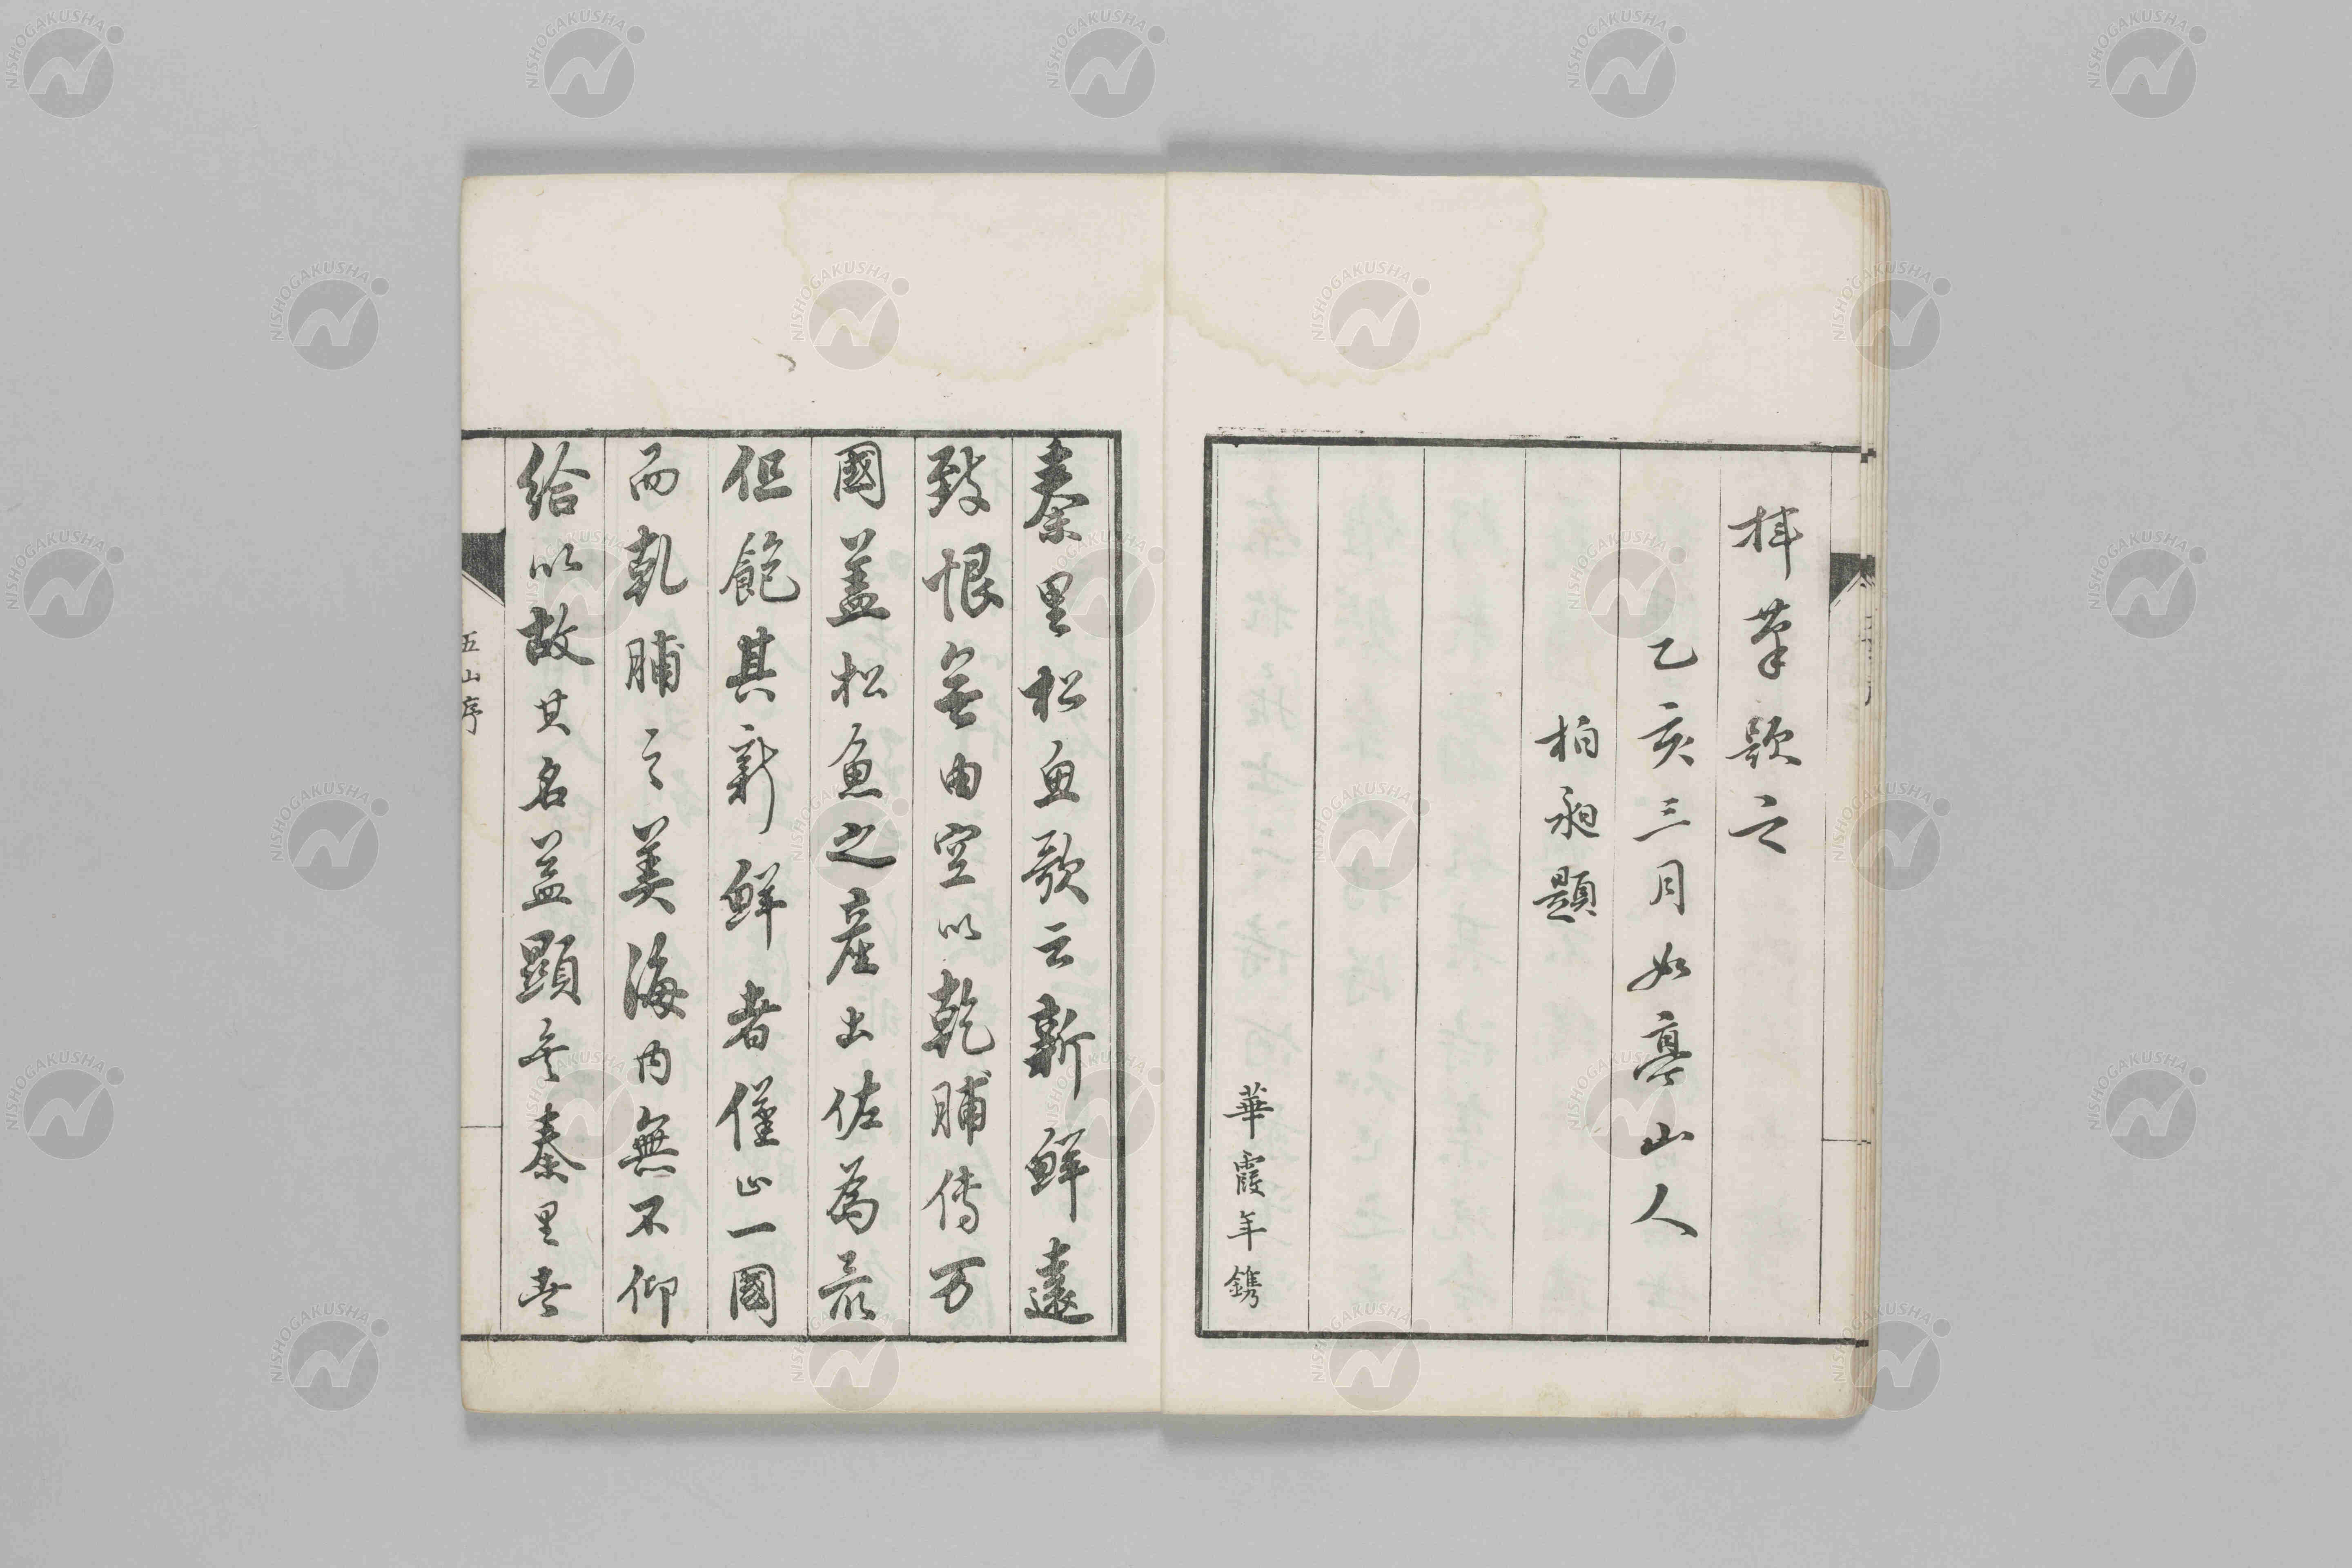 拝草題之
乙亥三月如亭山人
柏昶題
華霞年鐫
秦里松魚歌云新鮮遠
致恨無由空以乾脯傳万
國蓋松魚之産土佐為最
但飽其新鮮者僅止一國
而乾脯之美海内無不仰
給以故其名益顕矣秦里
五山序
NISHOGAKUSHA